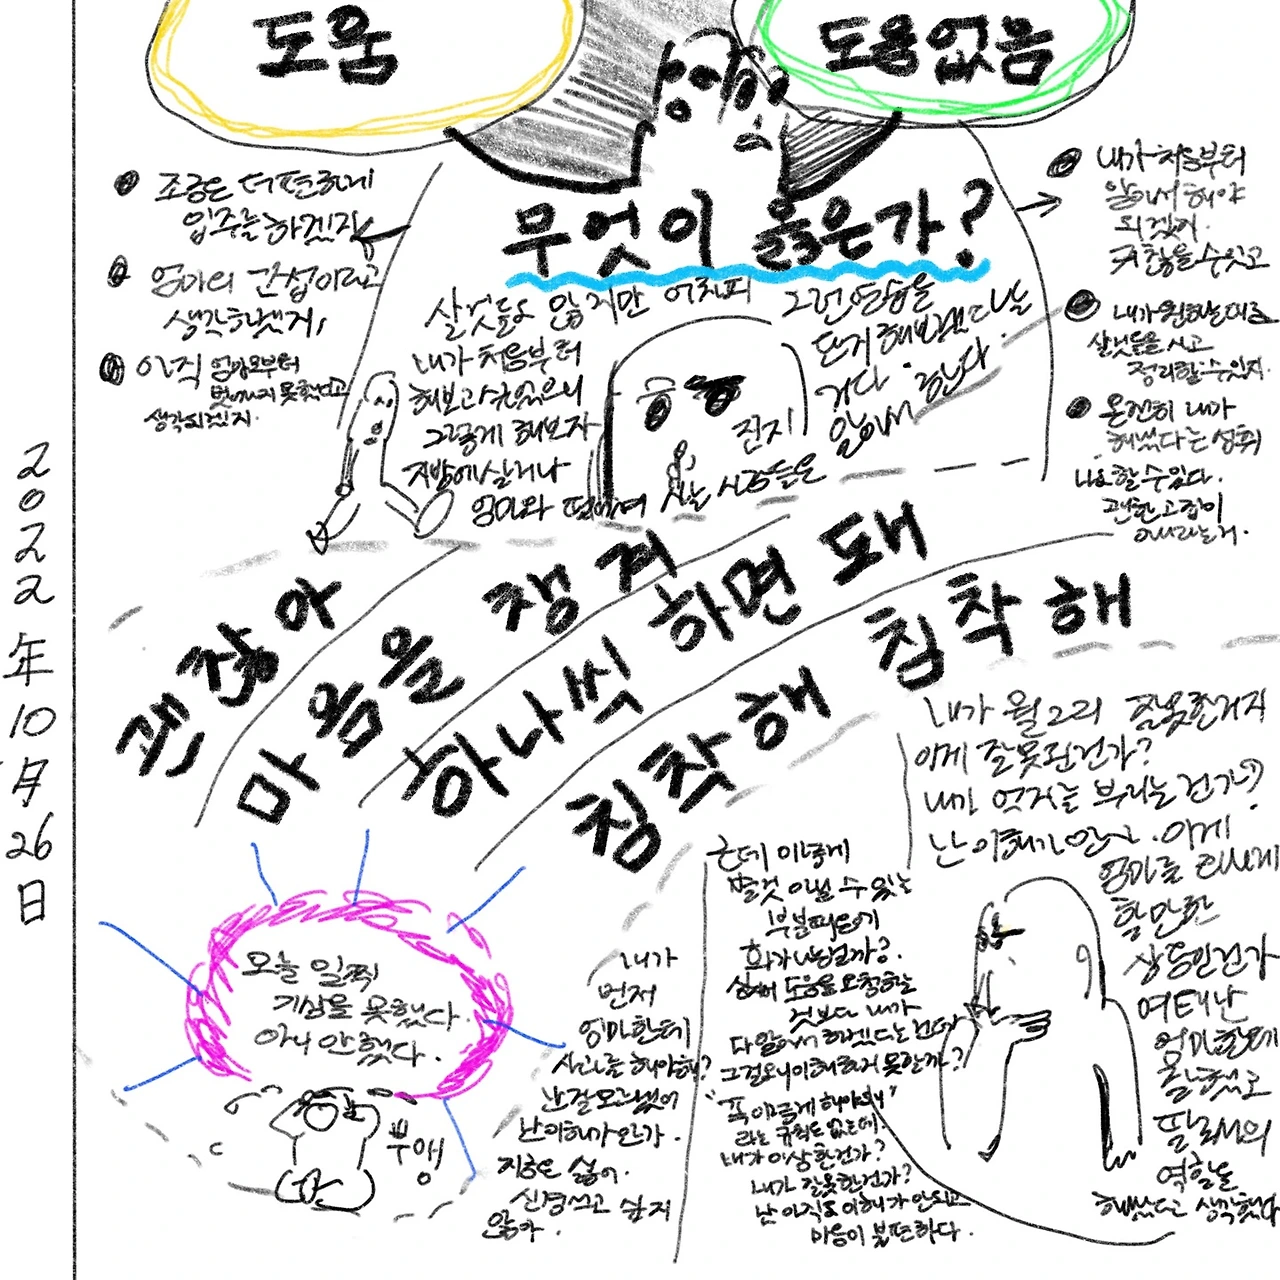 도움
도움없음
무엇이 옳은가?
조금은 더 편하게
입주를 하겠지
엄마의 간섭이라고
생각하겠지,
아직 엄마로부터
벗어나지 못했다고
생각되겠지.
내가 처음부터
알아서 해야
되겠지.
귀찮을 수 있고
내가 원하는대로
살것들을 사고
정리할 수 있지.
온전히 내가
해냈다는 성취
나요 할 수 있다.
괜한 고집이
아니라는거.
살것들도 많지만 어차피
내가 처음부터
해보고 싶었으니
그렇게 해보자
자방에 살거나
엄마와 떨어져 사는 시간들을
진지
그런 연습을
단지 해보았다는
거다. 겁난다
앞에서
2022年10月26日
괜찮아
마음을 챙겨
하나씩 하면 돼
침착해 침착해
오늘 일찍
기상을 못했다.
아니 안했다.
부엉
내가
먼저
엄마한테
사과를 해야해?
난 잘모르겠어
난 이해가 안가.
지는 싫어.
신경쓰고 싶지
않아.
근데 이렇게
별것 아닐 수 있는
부분때문에
화가 나는건가?
심지어 도움을 요청하는
것보다 내가
다 알아서 하겠다는건데
그걸 왜 이해하지 못할까?
"꼭 이렇게 해야돼"
라는 규칙도 없는데.
내가 이상한건가?
내가 잘못한건가?
난 아직도 이해가 안되고
마음이 불편하다.
내가 뭘 그리 잘못한거지
이게 잘못된건가?
내가 억지를 부리는건가?
난 이해가 안가. 이게
엄마를
할만한
상황인건가
여태 난
엄마한테
잘했고
딸로서의
역할을
해냈다고 생각했다